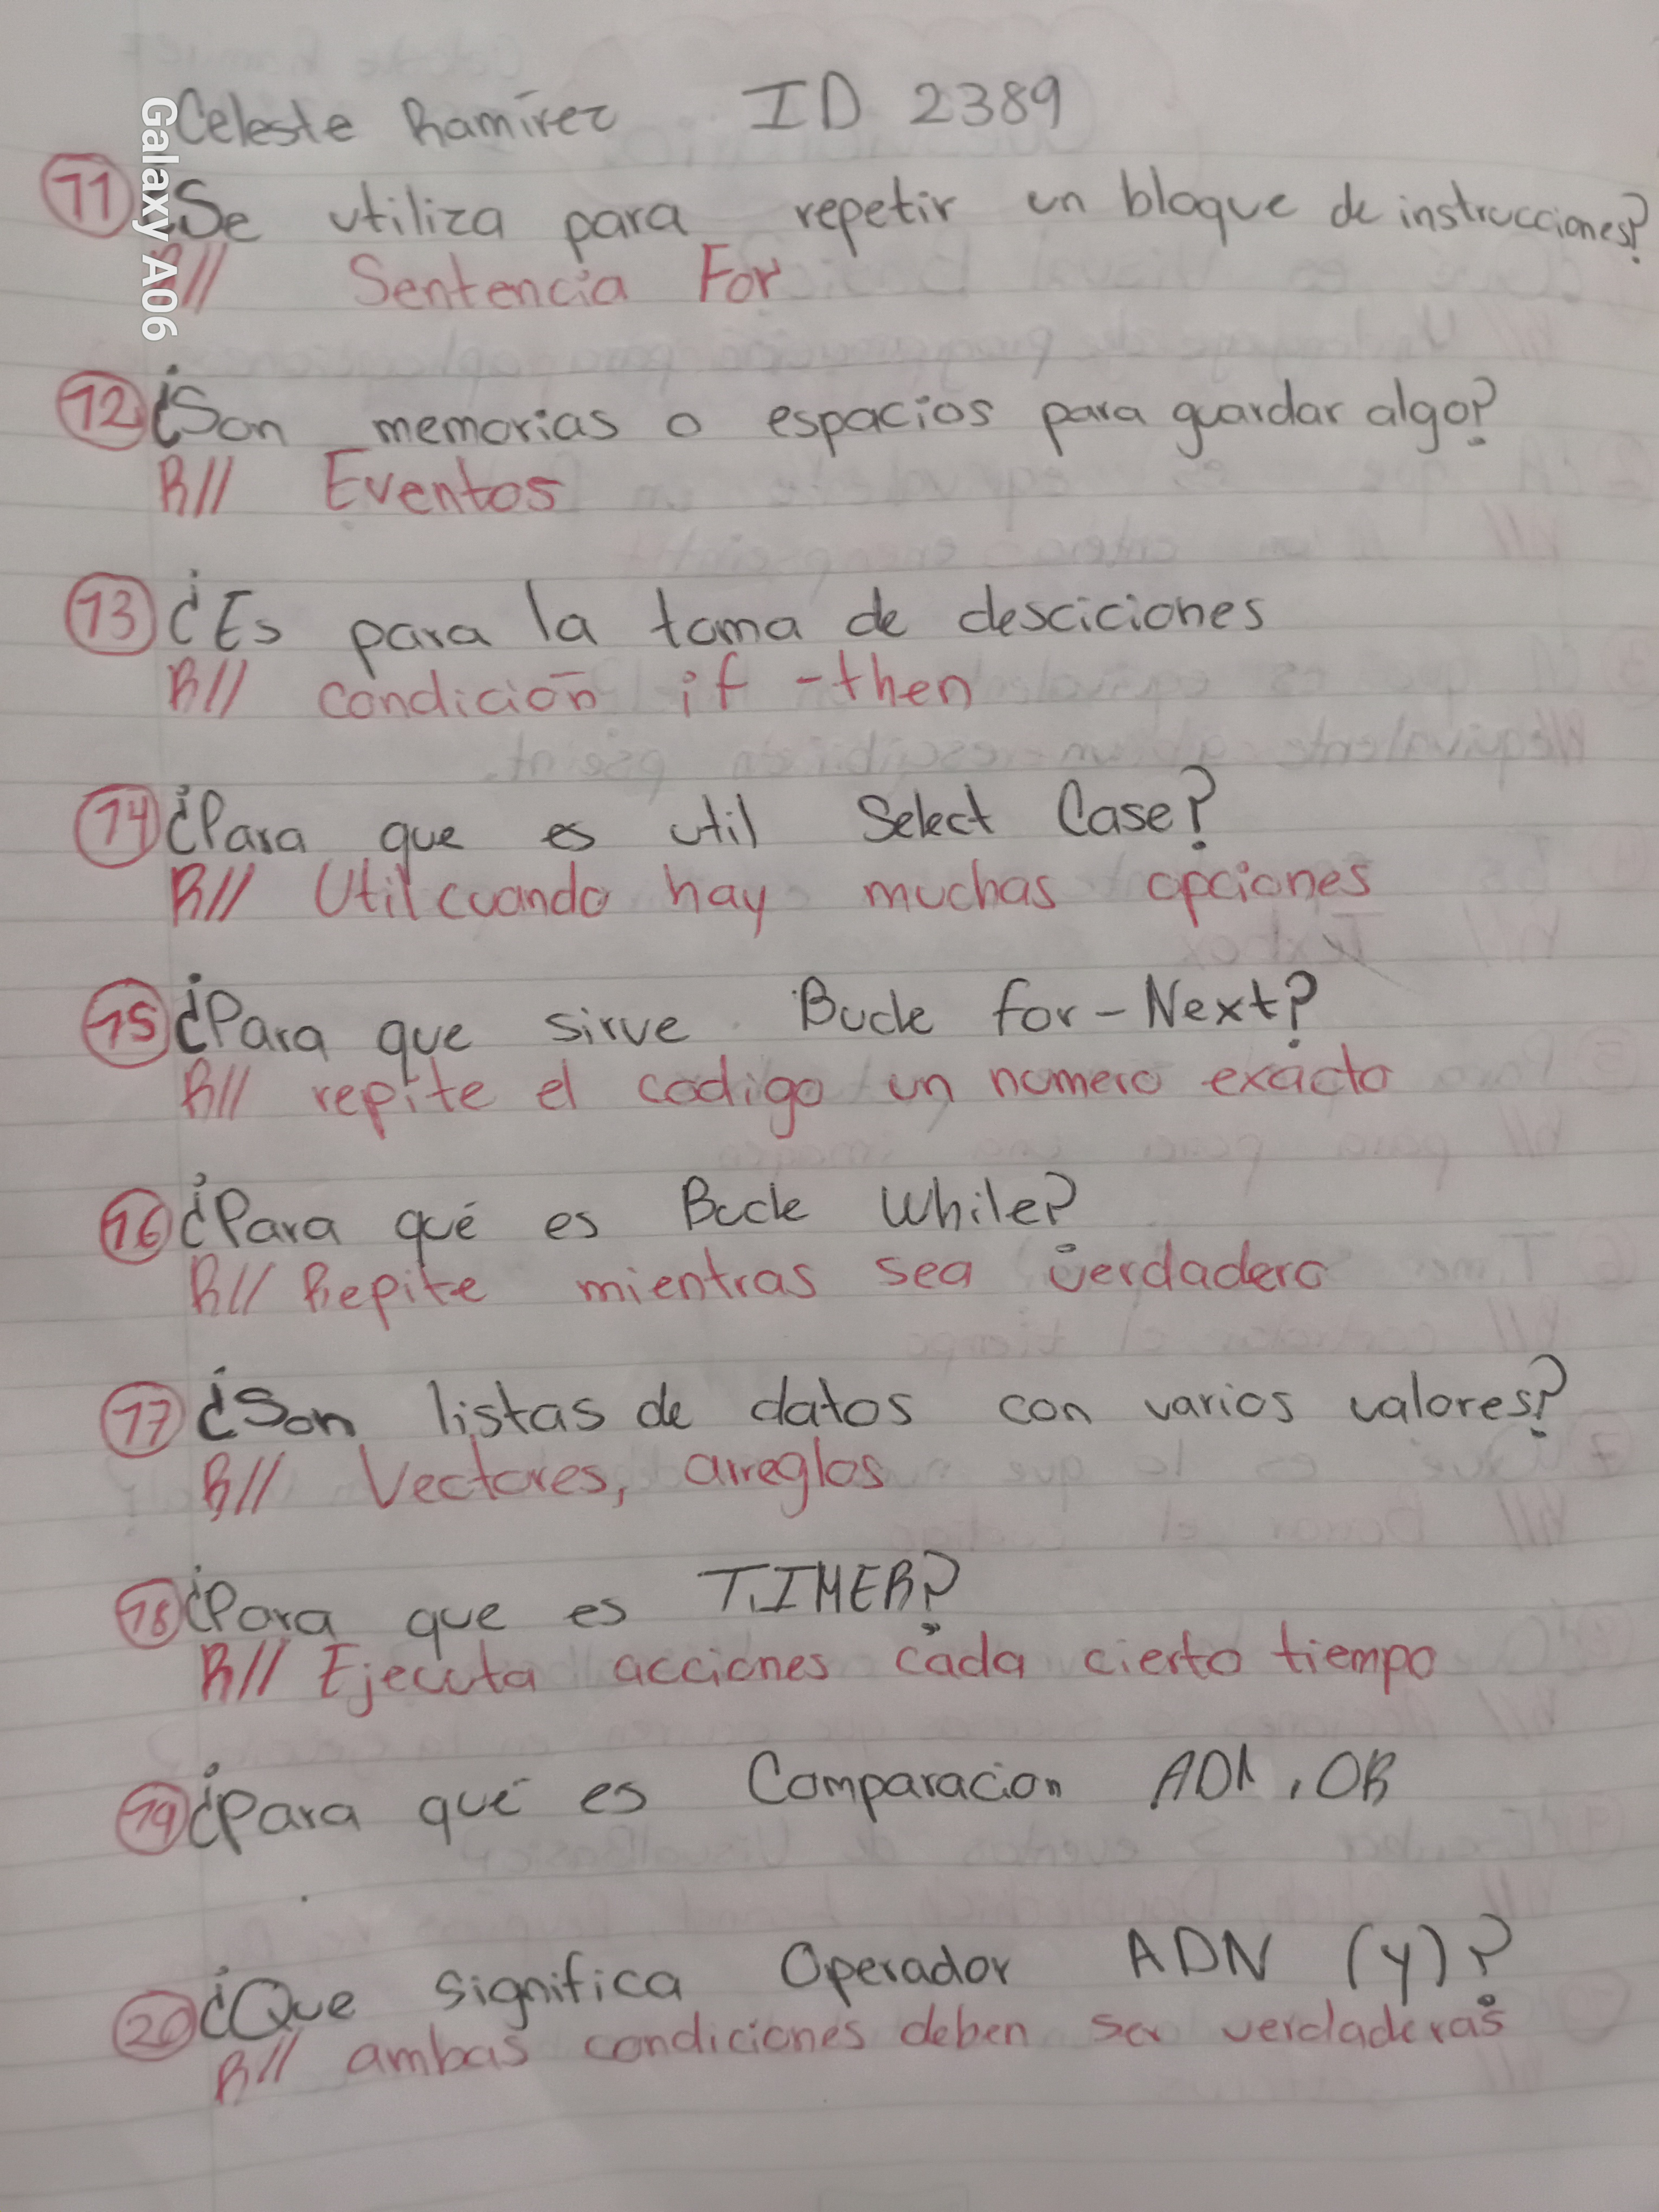 Celeste Ramírez ID 2389
11 ¿Se utiliza para repetir un bloque de instrucciones?
R// Sentencia For
12 ¿Son memorias o espacios para guardar algo?
R// Eventos
13 ¿Es para la toma de desciciones
R// condición if - then
14 ¿Para que es util Select Case?
R// Util cuando hay muchas opciones
15 ¿Para que sirve Bucle for - Next?
R// repite el codigo un numero exacto
16 ¿Para qué es Bucle While?
R// Repite mientras sea verdadero
17 ¿Son listas de datos con varios valores?
R// Vectores, arreglos
18 ¿Para que es TIMER?
R// Ejecuta acciones cada cierto tiempo
19 ¿Para qué es Comparacion ADN, OR
20 ¿Que significa Operador ADN (y)?
R// ambas condiciones deben ser verdaderas
Galaxy A06